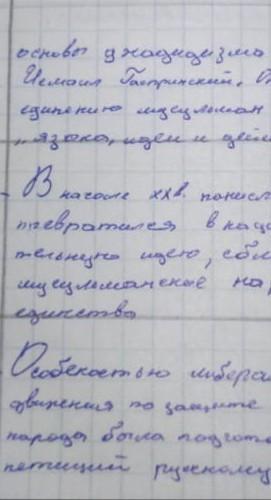 основы джадидизма
Исмаил Гаспринский.
единению мусульман
"языка, идеи и дей
- В начале XX в. панисл
превратился в нац
тельную идею, сбл
мусульманские на
единства
Особеностью либера
движения по защите
народа была подгото
петиций русскому